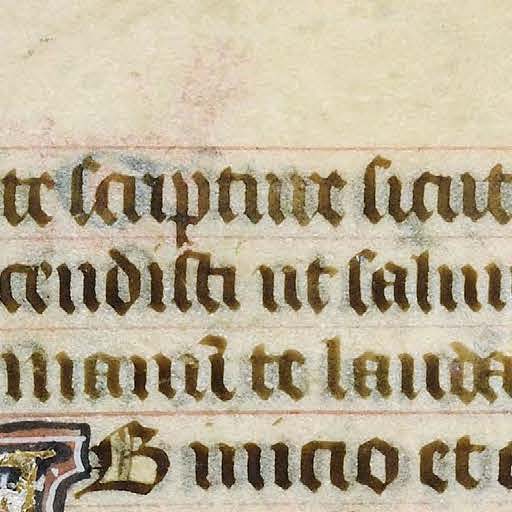 te scripture sicut
cendisti ut saluu
manu te lauda
B initio et